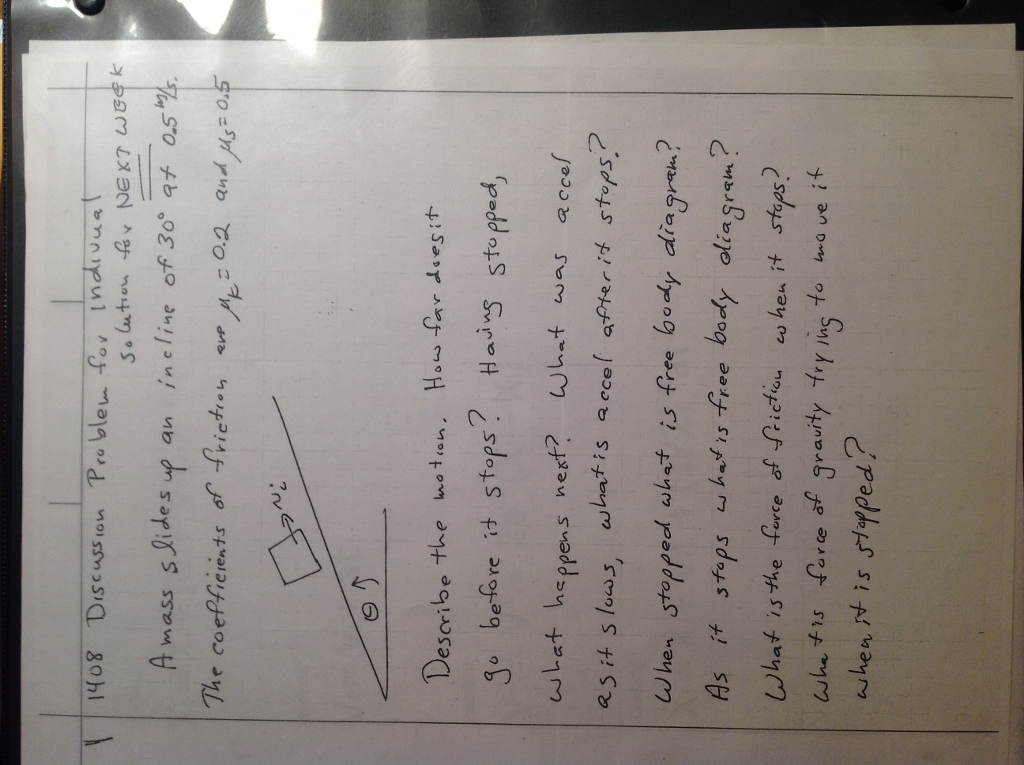 1408 Discussion Problem for Indivual
Solution for NEXT WEEK
A mass slides up an incline of 30° at 0.5 m/s.
The coefficients of friction are μk = 0.2 and μs = 0.5
vi
θ
Describe the motion. How far does it
go before it stops? Having stopped,
what happens next? What was accel
as it slows, what is accel after it stops?
When stopped what is free body diagram?
As it stops what is free body diagram?
What is the force of friction when it stops?
What is force of gravity trying to move it
when it is stopped?